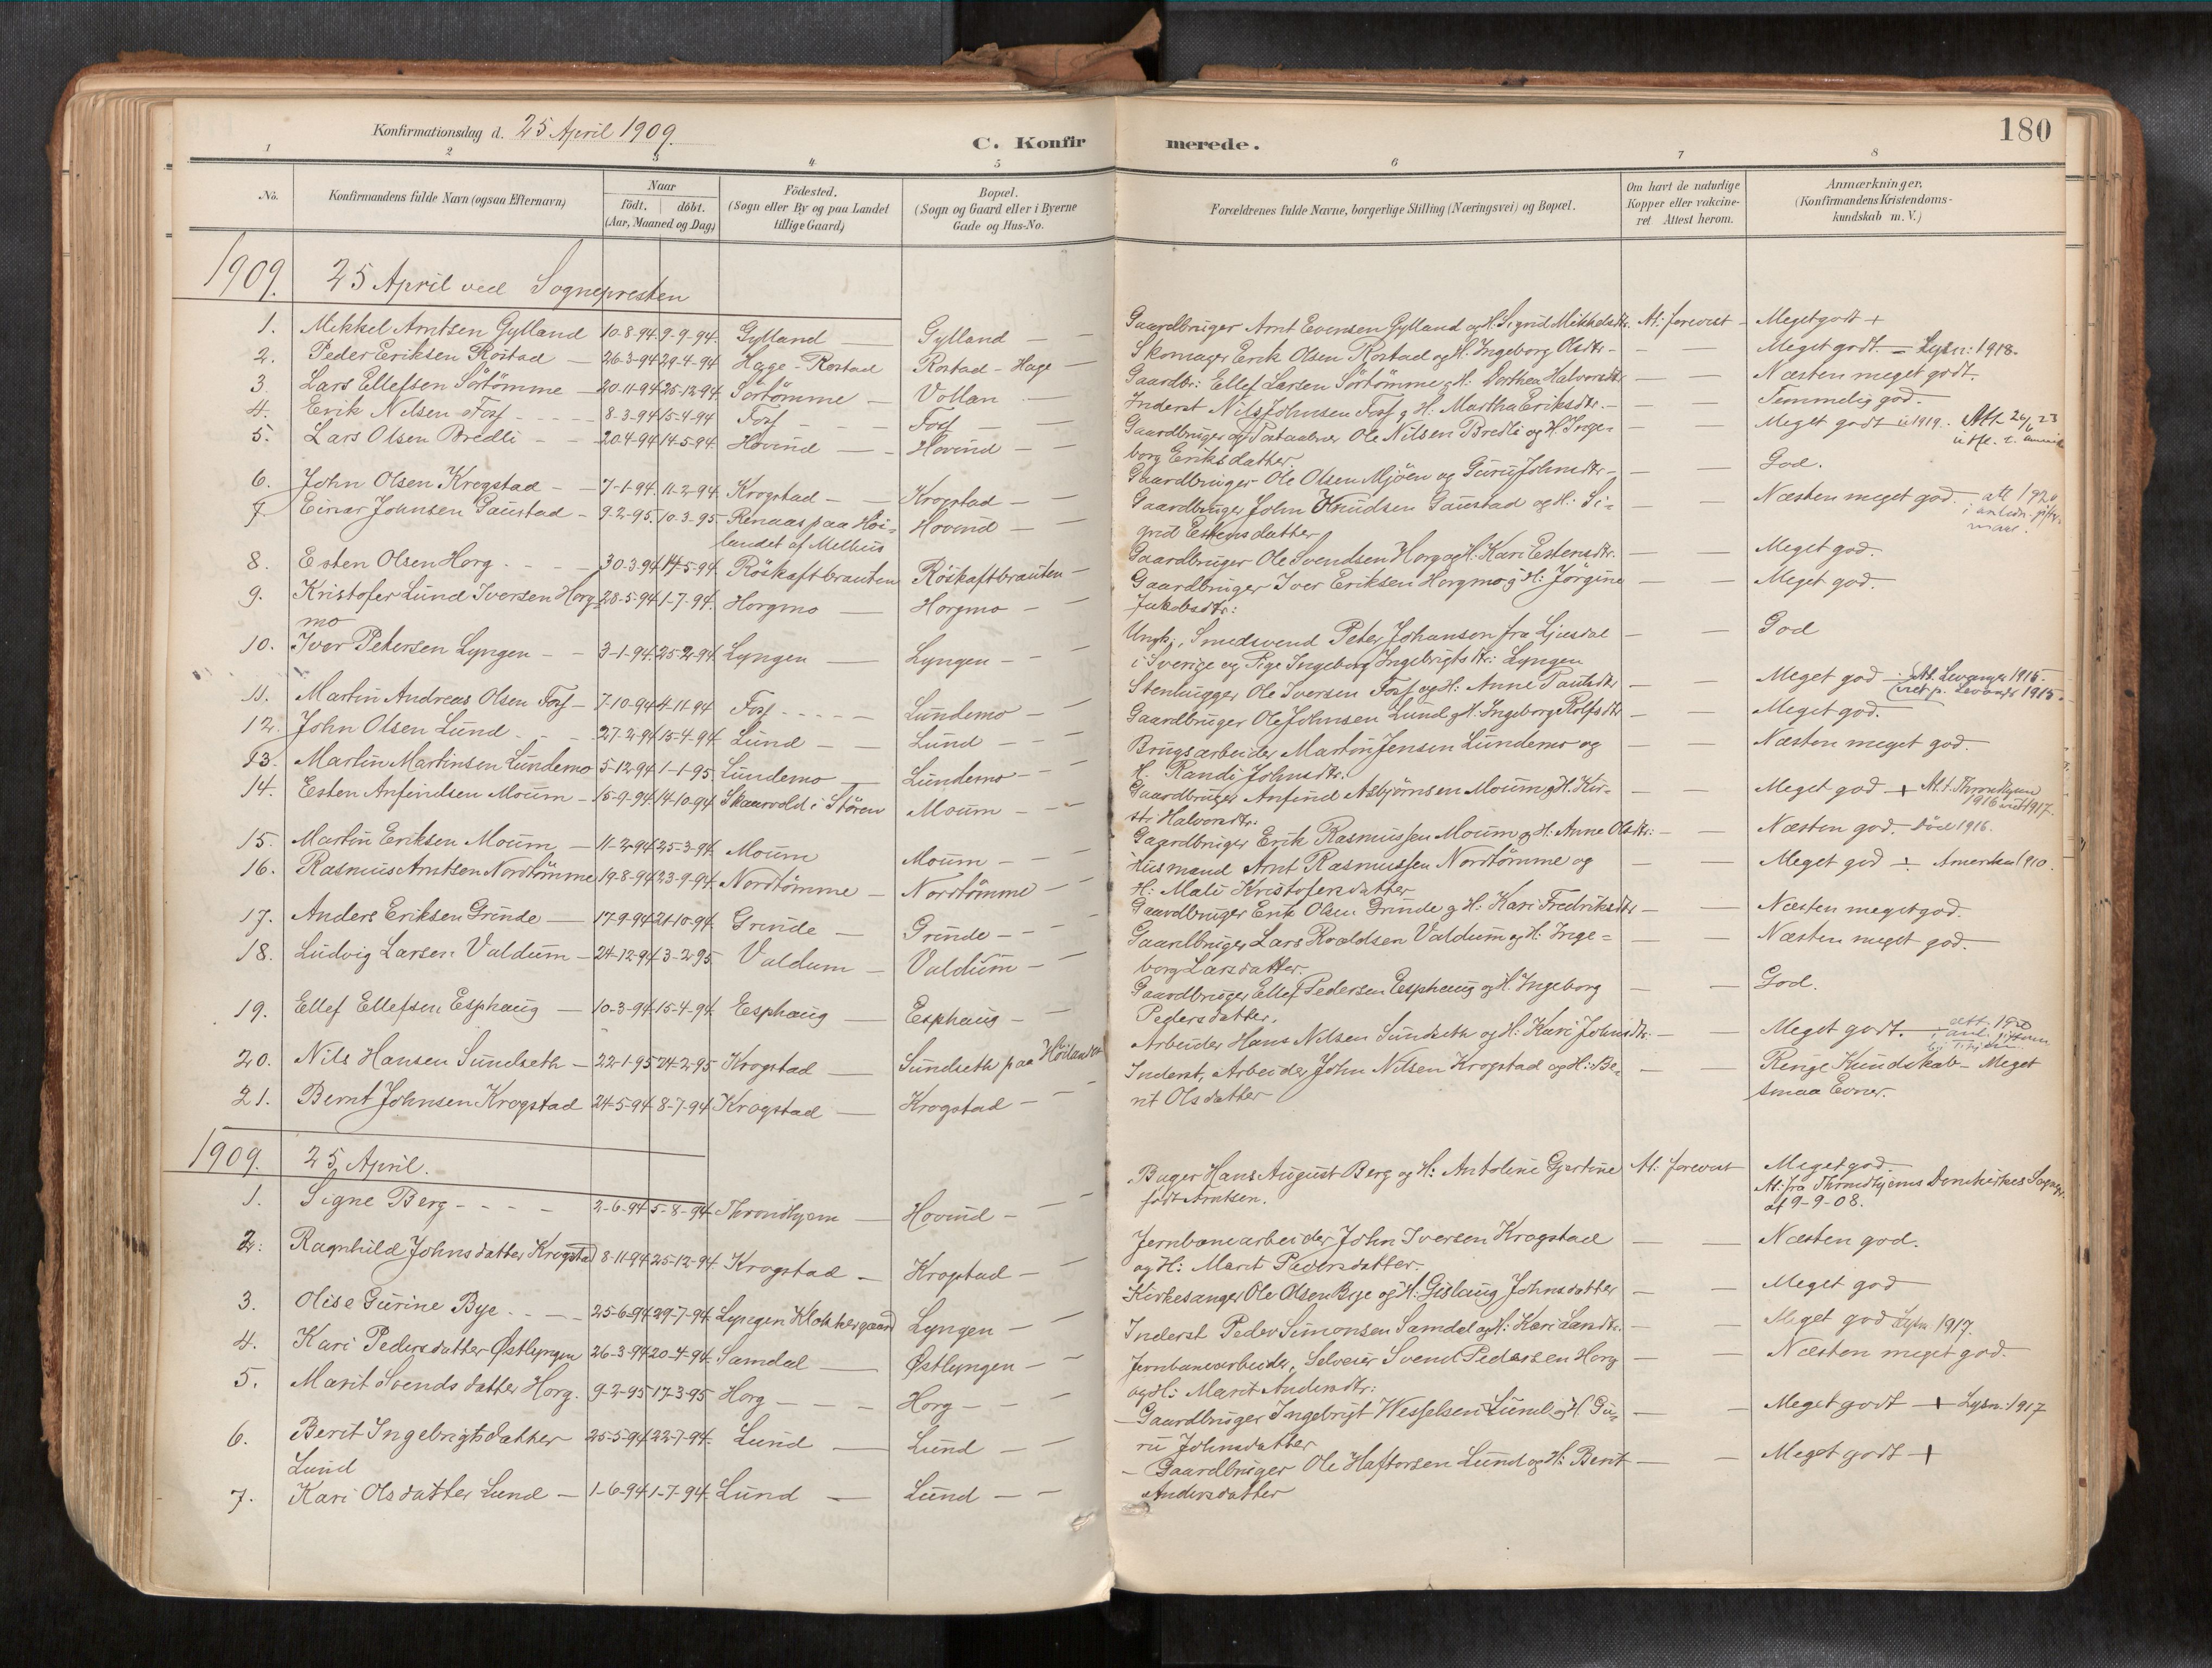 Konfirmationsdag d. 25 April 1909.
C. Konfirmerede.
180
1 2 3 4 5 6 7 8
No.
Konfirmandens fulde Navn (ogsaa Efternavn)
Naar
födt. | döbt.
(Aar, Maaned og Dag)
Födested.
(Sogn eller By og paa Landet
tillige Gaard)
Bopæl.
(Sogn og Gaard eller i Byerne
Gade og Hus-No.
Forældrenes fulde Navne, borgerlige Stilling (Næringsvei) og Bopæl.
Om havt de naturlige
Kopper eller vakcine-
ret Attest herom.
Anmærkninger,
(Konfirmandens Kristendoms-
kundskab m. V.)
1909. 25 April ved Sognepresten
1. Mikkel Arntsen Gylland 10-8-94 9-9-94. Gylland — Gylland — Gaardbruger Arnt Evensen Gylland og H. Sigrid Mikkelsdtr. At: forevist — Megetgodt +
2. Peder Eriksen Rostad — 26-3-94 29-4-94 Hage-Rostad Rostad-Hage — Skomager Erik Olsen Rostad og H. Ingeborg Olsdtr — — Meget godt. — Lysn: 1918.
3. Lars Ellefsen Sörtömme — 20-11-94 25-12-94 Sörtömme — Vollan — Gaardbr: Ellef Larsen Sörtömme og H: Dorthea Halvorsdtr — — Næsten meget godt.
4. Erik Nilsen Foss — 8-3-94 15-4-94 Foss — Foss — Inderst Nils Johnsen Foss og H: Martha Eriksdtr. — — Temmelig god.
5. Lars Olsen Bredli — 20-4-94 14-5-94 Hovind — Hovind — Gaardbruger og Postaabner Ole Nilsen Bredli og H. Inge- — — Meget godt 1919. Att 26/6 23
borg Eriksdatter.
6. John Olsen Krogstad — 7-1-94. 11-2-94. Krogstad — Krogstad — Gaardbruger Ole Olsen Mjöen og Guru Johnsdtr — — God.
7. Einar Johnsen Gaustad — 9-2-95. 10-3-95 Renaas paa Höi- Hovind — Gaardbruger John Knudsen Gaustad og H: Si- — Næsten meget god. — att 1920
landet af Melhus grid Estensdatter
8. Esten Olsen Horg — 30-3-94 14-5-94. Röskaftbrauten Röskaftbrauten — Gaardbruger Ole Svendsen Horg og H. Kari Estensdtr. — — Meget god.
9. Kristofer Lund Iversen Horg- 28-5-94 1-7-94. Horgmo — Horgmo — Gaardbruger Iver Eriksen Horgmo og H: Jörgine — — Meget god.
mo Jakobsdtr:
10. Iver Petersen Lyngen — 3-1-94. 25-2-94. Lyngen — Lyngen — Ungk., Smedsvend Peter Johanson fra Ljusdal — — God
i Sverige og Pige Ingeborg Ingebrigtsdtr: Lyngen
11. Martin Andreas Olsen Foss — 7-10-94 4-11-94 Foss — Lundemo — Stenhugger Ole Iversen Foss og H: Anne Paulsdtr — — Meget god — At. Levanger 1915.
viet p. Levanger 1915.
12. John Olsen Lund — 27-2-94 15-4-94. Lund — Lund — Gaardbruger Ole Johnsen Lund og H: Ingeborg Rolfsdtr — — Meget god.
13. Martin Martinsen Lundemo 5-12-94 1-1-95. Lundemo — Lundemo — Brugsarbeider Martin Jensen Lundemo og — — Næsten meget god.
H. Randi Johnsdtr.
14. Esten Anfindsen Moum — 15-9-94 14-10-94 Skaarvold i Stören Moum — Gaardbruger Anfind Asbjörnsen Moum og H. Kir- — — Meget god + At. t. Throndhjem
sti Halvorsdtr: 1916 viet 1917.
15. Martin Eriksen Moum — 11-2-94 25-3-94. Moum Moum — Gaardbruger Erik Rasmussen Moum og H: Anne Olsdtr: — — Næsten god. död 1916.
16. Rasmus Arntsen Nordtömme 19-8-94 23-9-94. Nordtömme — Nordtömme — Husmand Arnt Rasmussen Nordtömme og — — Meget god — Amerika 1910.
H: Mali Kristofersdatter
17. Anders Eriksen Grinde — 17-9-94 21-10-94. Grinde — Grinde — Gaardbruger Erik Olsen Grinde og H: Kari Fredriksdtr — — Næsten meget god.
18. Ludvig Larsen Valdum — 24-12-94 3-2-95 Valdum — Valdum — Gaardbruger Lars Roaldsen Valdum og H: Inge= — — Næsten meget god.
borg Larsdatter.
19. Ellef Ellefsen Esphaug — 10-3-94 15-4-94. Esphaug — Esphaug — Gaardbruger Ellef Pedersen Esphaug og H. Ingeborg — — God.
Pedersdatter.
20. Nils Hansen Sundseth — 22-1-95 24-2-95 Krogstad — Sundseth paa Höilandet Arbeider Hans Nilsen Sundseth og H: Kari Johnsdtr. — — Meget godt. — att. 1920
21. Bernt Johnsen Krogstad 24-5-94 8-7-94 Krogstad — Krogstad — Inderst, Arbeider John Nilsen Krogstad og H: Be- — — Ringe Kundskab — Meget
rit Olsdatter smaa Evner.
1909. 25 April.
1. Signe Berg — 2-6-94 5-8-94 Throndhjem — Hovind — Bager Hans August Berg og H: Antoline Gjertine At: forevist Meget god.
född Arntsen. At: fra Throndhjems Domkirkes Sogepr.
af 19-9-08.
2. Ragnhild Johnsdatter Krogstad 8-11-94 25-12-94. Krogstad — Krogstad — Jernbanearbeider John Iversen Krogstad — — Næsten god.
og H: Marit Pedersdatter.
3. Olise Gurine Bye — 25-6-94 29-7-94. Lyngen Klokkergaard Lyngen — Kirkesanger Ole Olsen Bye og H: Gislaug Johnsdatter — — Meget god
4. Kari Pedersdatter Østlyngen 26-3-94 20-4-94. Samdal — Østlyngen — Inderst Peder Simonsen Samdal og H: Kari Larsdtr. — — Meget god Lysn. 1917.
5. Marit Svendsdatter Horg. 9-2-95 17-3-95 Horg — Horg — Jernbanearbeider, Selveier Svend Pedersen Horg — — Næsten meget god.
og H: Marit Andersdtr:
6. Berit Ingebrigtsdatter 25-5-94 22-7-94. Lund — Lund — Gaardbruger Ingebrigt Wesselsen Lund og H. Gu- — — Meget godt + Lysn: 1917
Lund ru Johnsdatter
7. Kari Olsdatter Lund — 1-6-94 1-7-94. Lund — Lund — Gaardbruger Ole Haftorsen Lund og H: Berit — — Meget godt +
Andersdatter